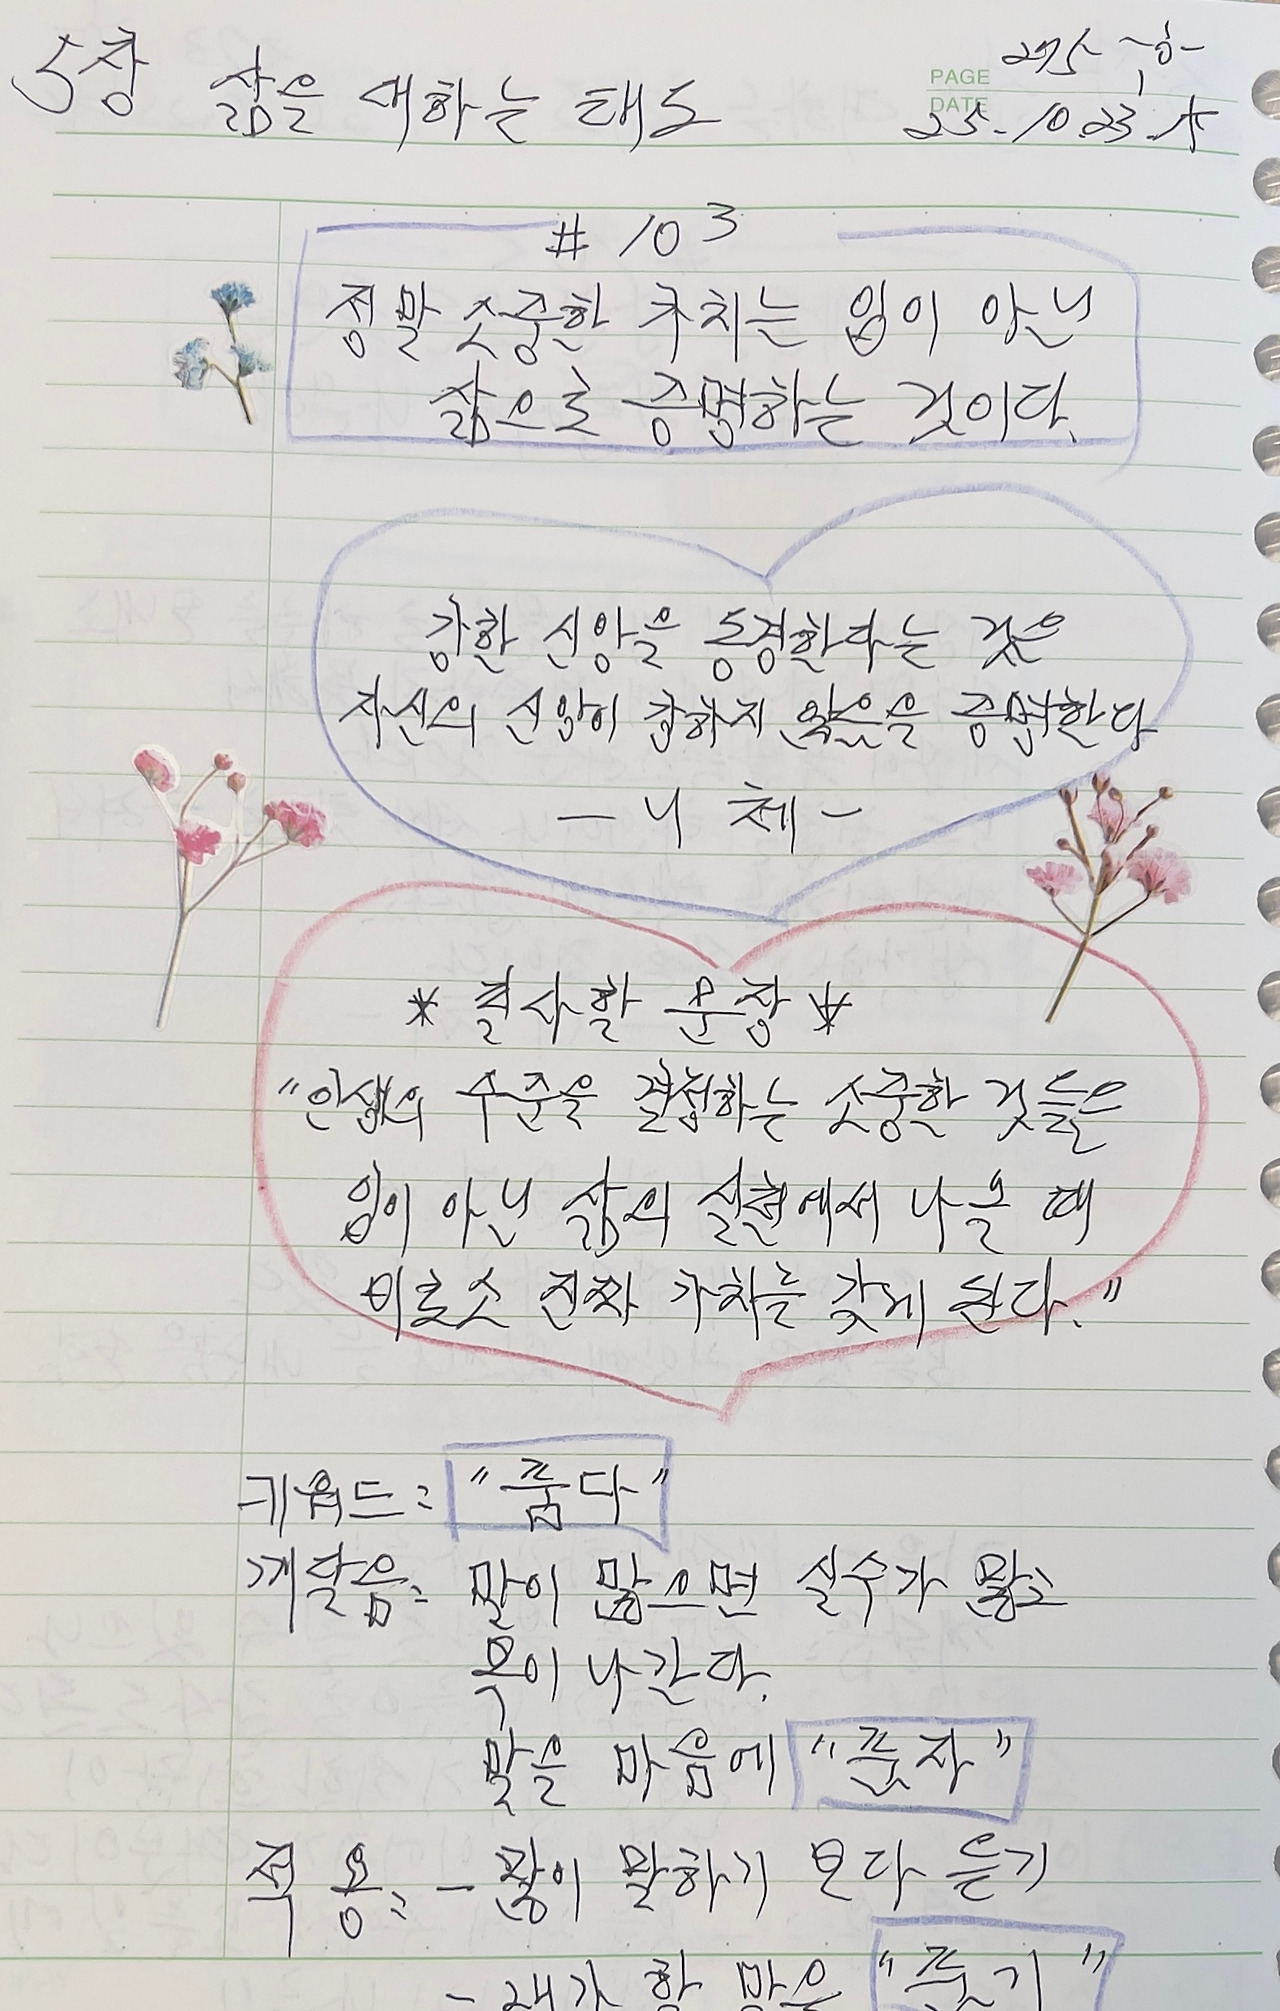 5장 삶을 대하는 태도
PAGE 275
DATE 25.10.23.
#103
정말 소중한 가치는 입이 아닌
삶으로 증명하는 것이다.
강한 신앙을 동경한다는 것은
자신의 신앙이 강하지 않음을 증명한다
- 니체 -
* 필사할 문장 *
"인생의 수준을 결정하는 소중한 것들은
입이 아닌 삶의 실천에서 나올 때
비로소 진짜 가치를 갖게 된다."
키워드: "줍다"
깨달음: 말이 많으면 실수가 많고
복이 나간다.
말을 마음에 "줍자"
적용: - 많이 말하기 보다 듣기
- 내가 할 말을 "줍기"